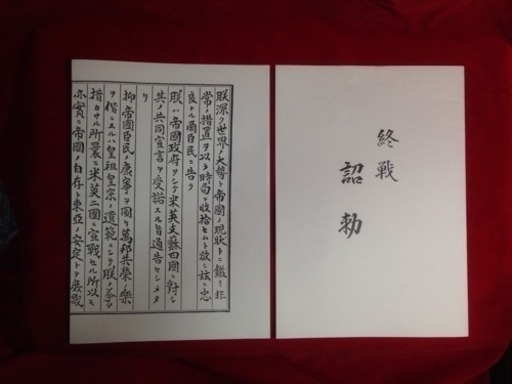 終戦
詔勅
朕深ク世界ノ大勢ト帝國ノ現狀トニ鑑ミ非
常ノ措置ヲ以テ時局ヲ收拾セムト欲シ茲ニ忠
良ナル爾臣民ニ告ク
朕ハ帝國政府ヲシテ米英支蘇四國ニ對シ
其ノ共同宣言ヲ受諾スル旨通告セシメタ
リ
抑帝國臣民ノ康寧ヲ圖リ萬邦共榮ノ樂
ヲ偕ニスルハ皇祖皇宗ノ遺範ニシテ朕ノ拳々
措カサル所曩ニ米英二國ニ宣戰セル所以モ
亦實ニ帝國ノ自存ト東亞ノ安定トヲ庶幾